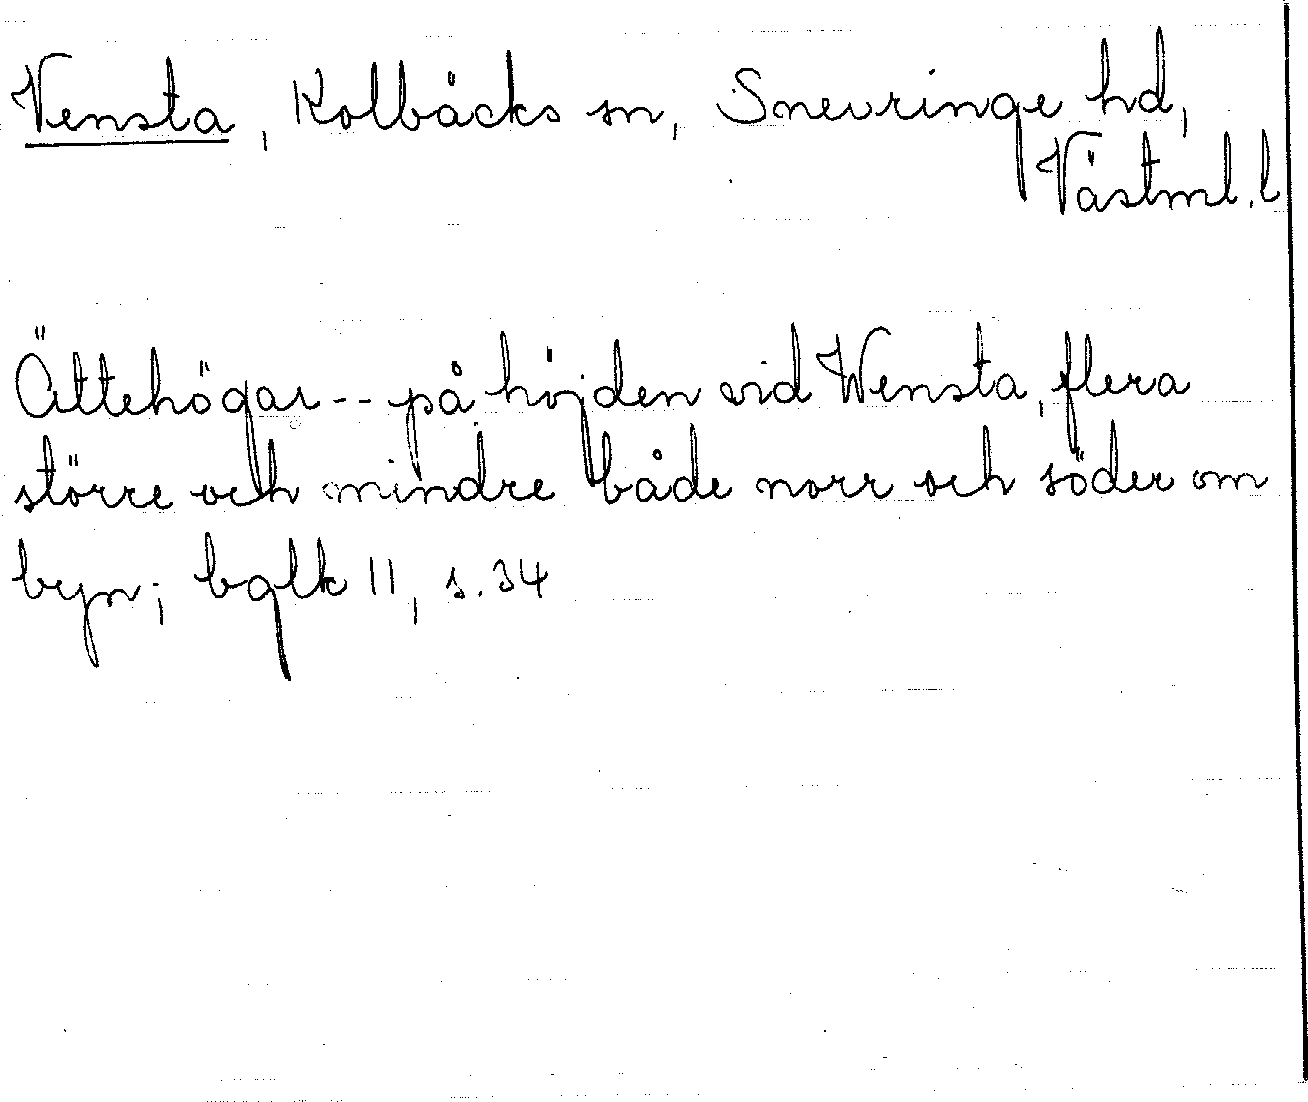 Vensta, Kolbäcks sn, Snevringe hd,
Västml.l
Ättehögar -- på höjden vid Wensta, flera
större och mindre både norr och söder om
byn; bglk 11, s. 34